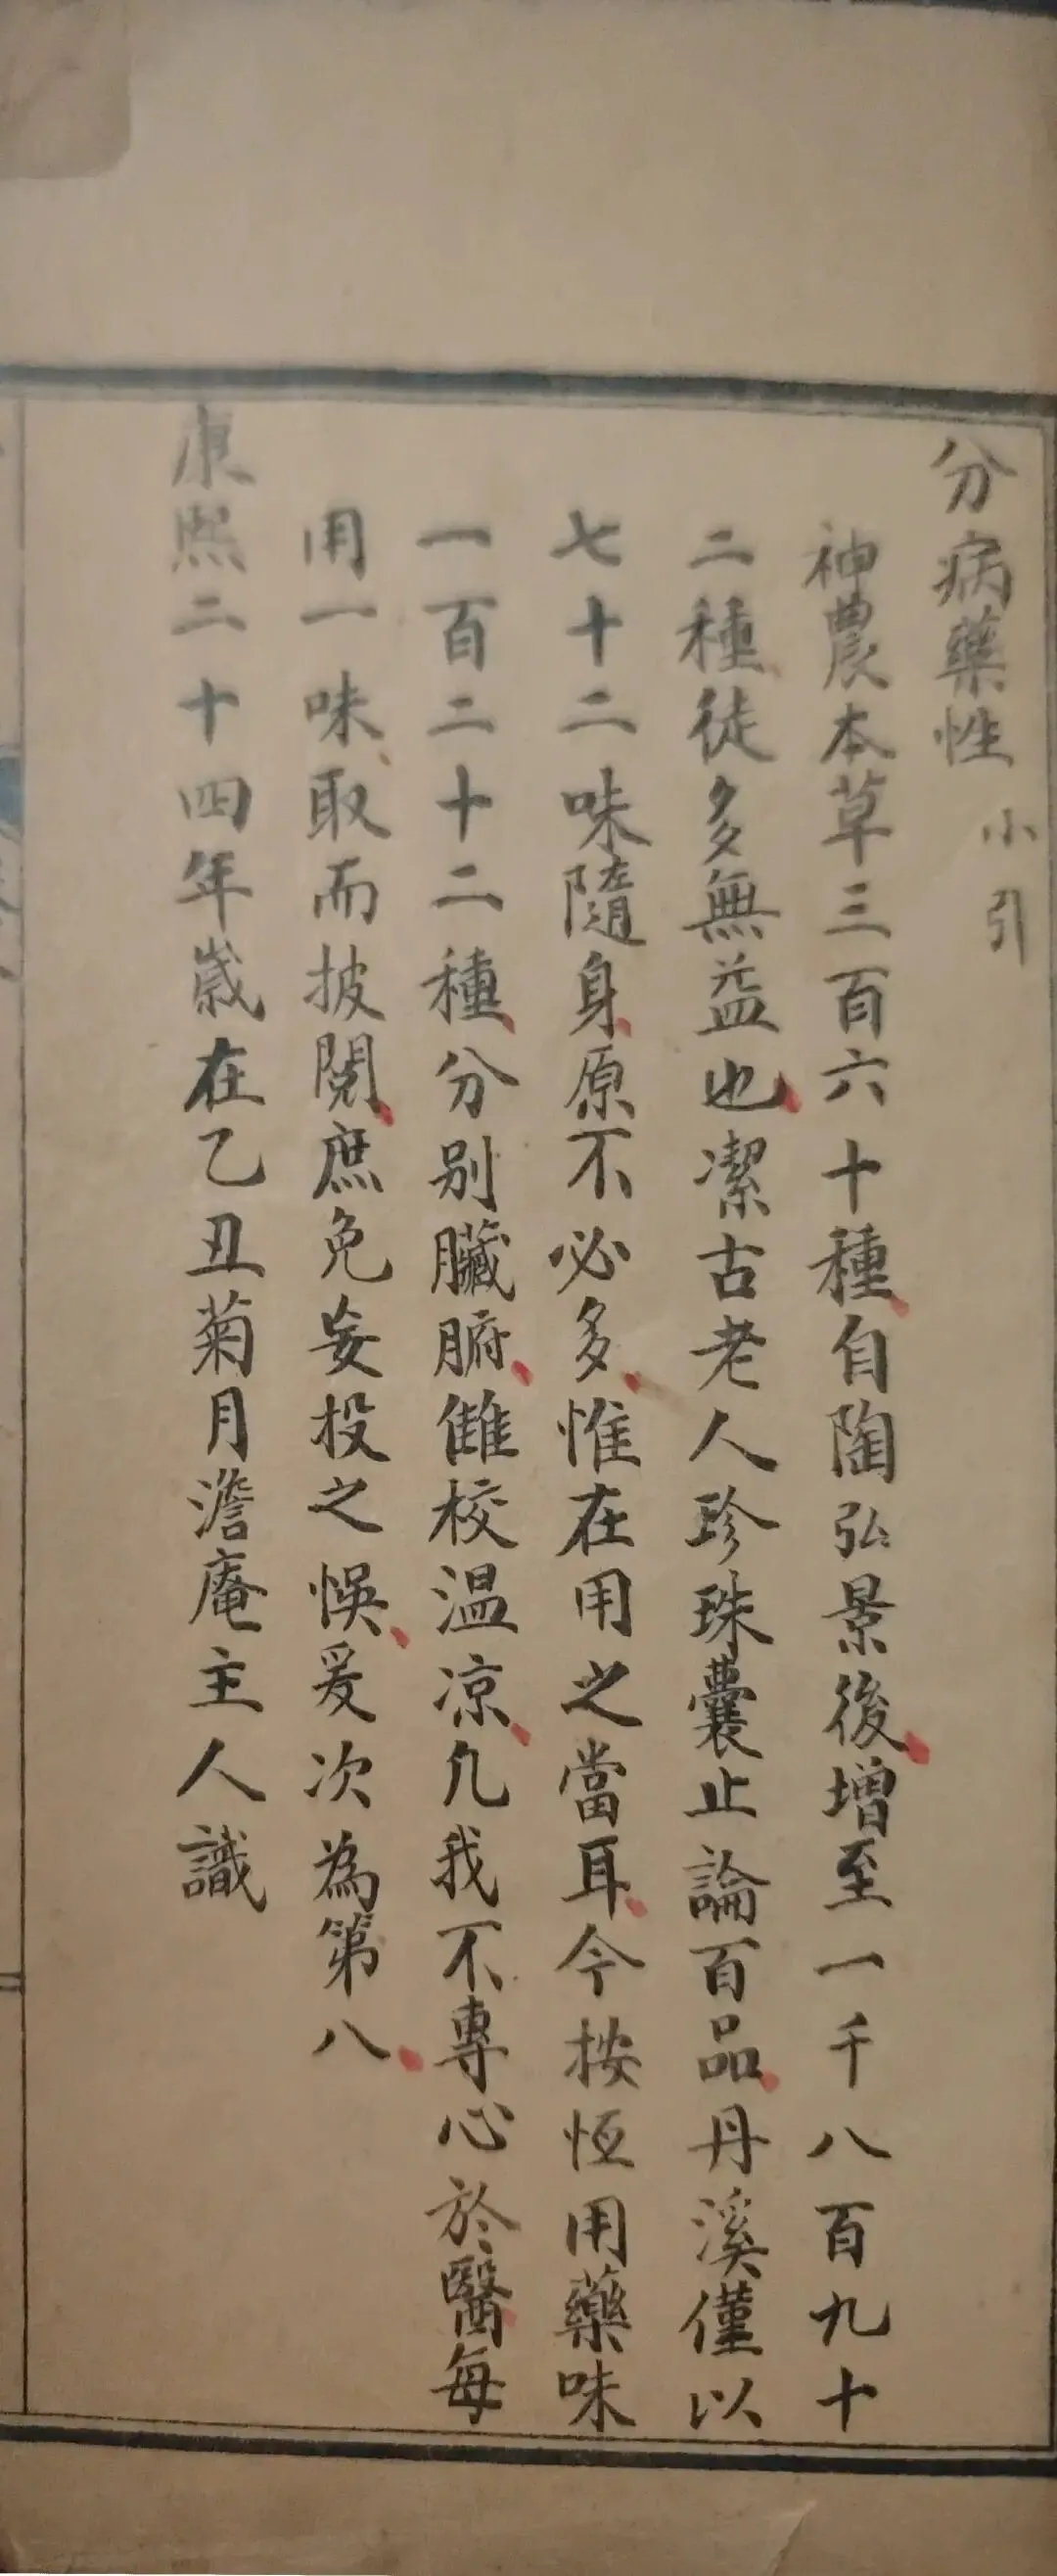 分病藥性 小引
神農本草三百六十種自陶弘景後增至一千八百九十
二種徒多無益也潔古老人珍珠囊止論百品丹溪僅以
七十二味隨身原不必多惟在用之當耳今按恆用藥味
一百二十二種分別臟腑讎校温凉凡我不專心於醫每
用一味取而披閱庶免妄投之悞爰次為第八
康熙二十四年歲在乙丑菊月澹庵主人識